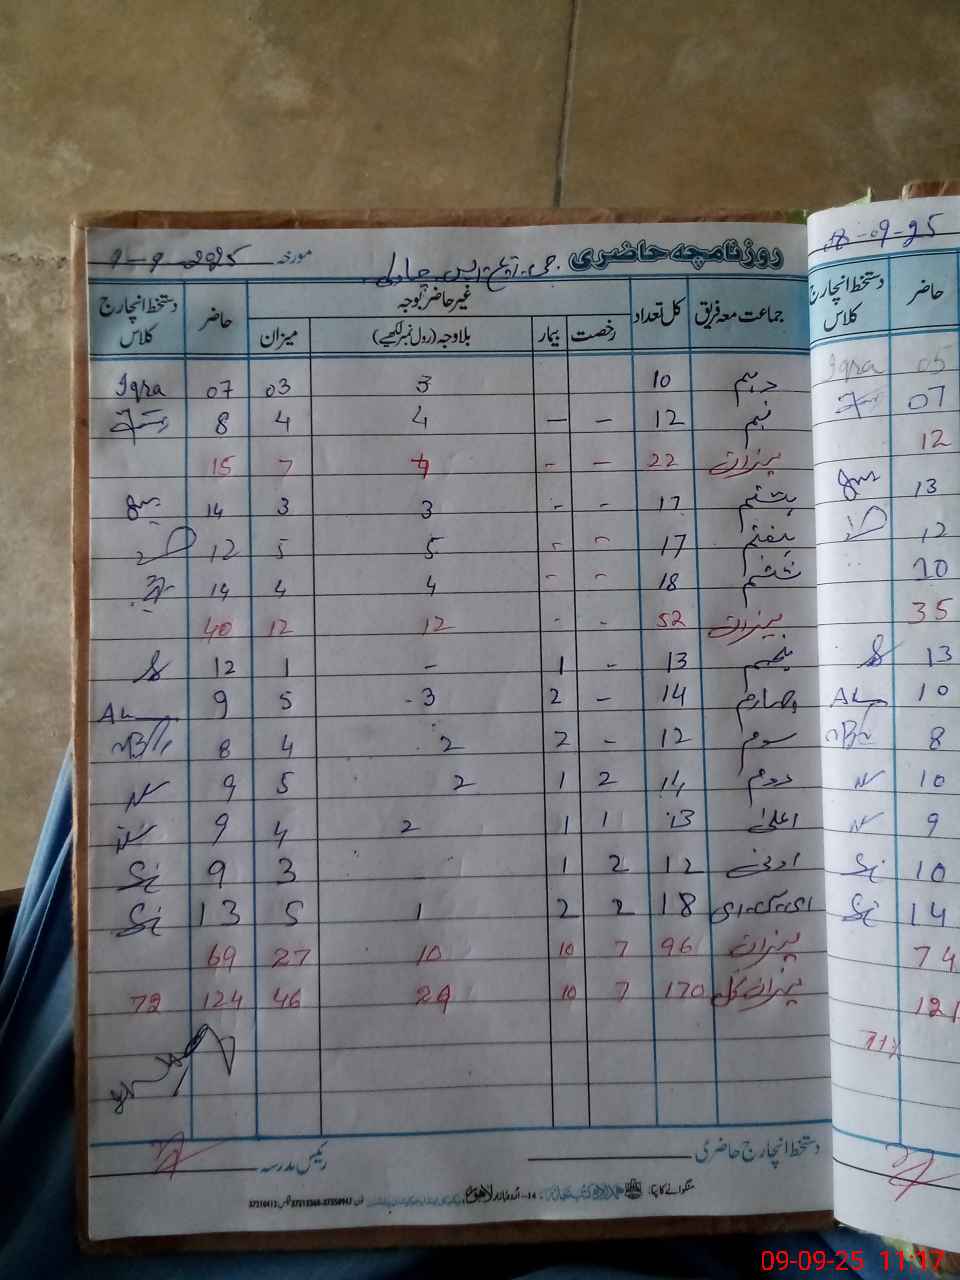 روزنامچہ حاضری جی۔ آر۔ ایچ۔ ایس مورخہ 9-9-2025
جماعت معہ فریق کل تعداد غیر حاضر بوجہ حاضر دستخط انچارج کلاس
رخصت بیمار بلاوجہ (رول نمبر لکھیے) میزان
دہم 10 3 03 07 Iqra
نہم 12 – – 4 4 8
میزان 22 – – 7 7 15
ہشتم 17 – – 3 3 14
ہفتم 17 – – 5 5 12
ششم 18 – – 4 4 14
میزان 52 – – 12 12 40
پنجم 13 – 1 – 1 12
چہارم 14 – 2 3 5 9
سوم 12 – 2 2 4 8
دوم 14 2 1 2 5 9
اعلیٰ 13 1 1 2 4 9
ادنیٰ 12 2 1 – 3 9
ای۔سی۔ای 18 2 2 1 5 13
میزان 96 7 10 10 27 69
میزان کل 170 7 10 29 46 124 72
دستخط انچارج حاضری رئیس مدرسہ
منگوانے کا پتہ: اردو بازار لاہور
08-09-25
حاضر دستخط انچارج کلاس
05 Iqra
07
12
13
12
10
35
13
10
8
10
9
10
14
74
121
71%
09-09-25 11:17